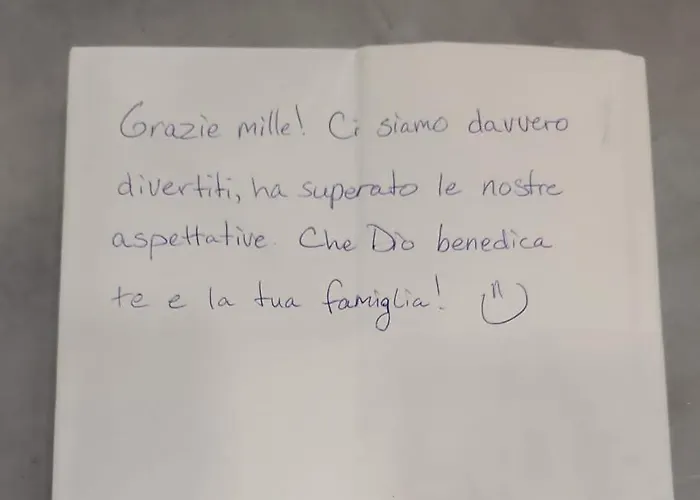 Grazie mille! Ci siamo davvero
divertiti, ha superato le nostre
aspettative. Che Dio benedica
te e la tua famiglia!